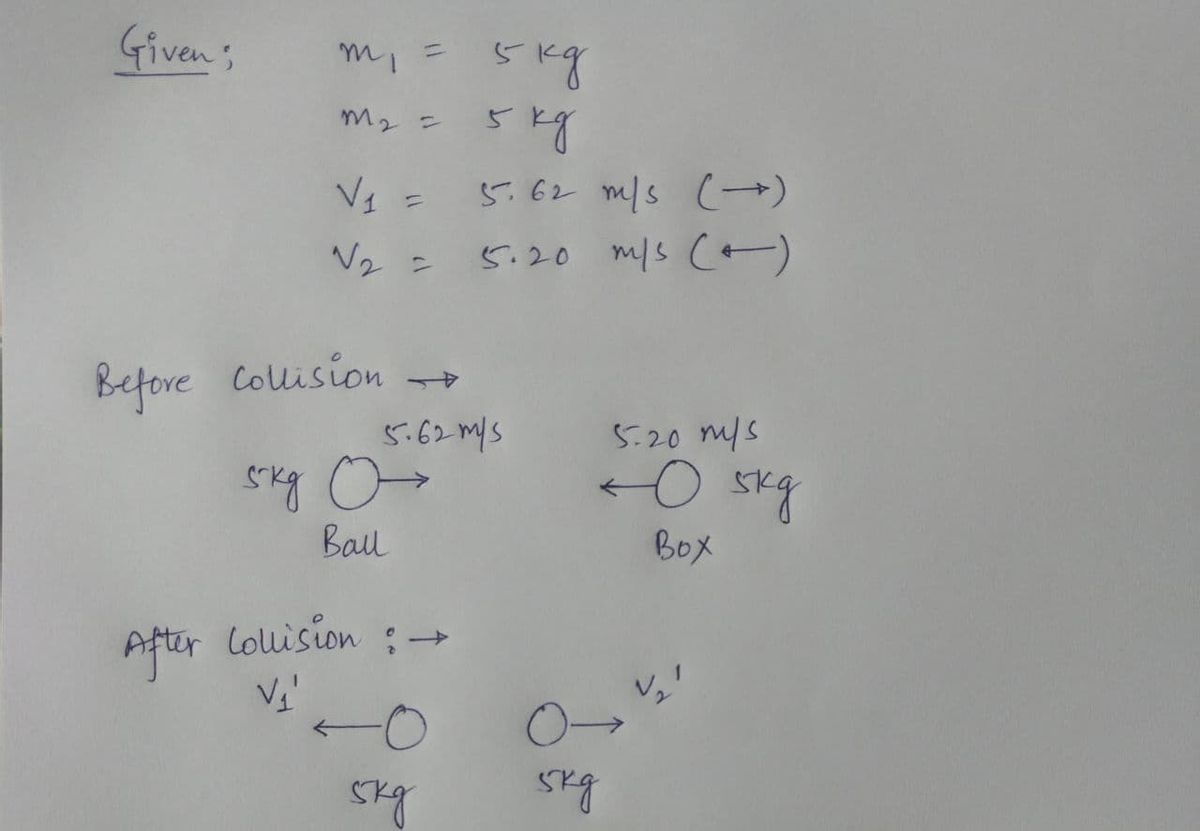 Given;
m₁ = 5 kg
m₂ = 5 kg
V₁ = 5.62 m/s (→)
V₂ = 5.20 m/s (←)
Before Collision →
5.62 m/s 5.20 m/s
5kg 5kg
Ball Box
After Collision : →
V₁' V₂'
5kg 5kg